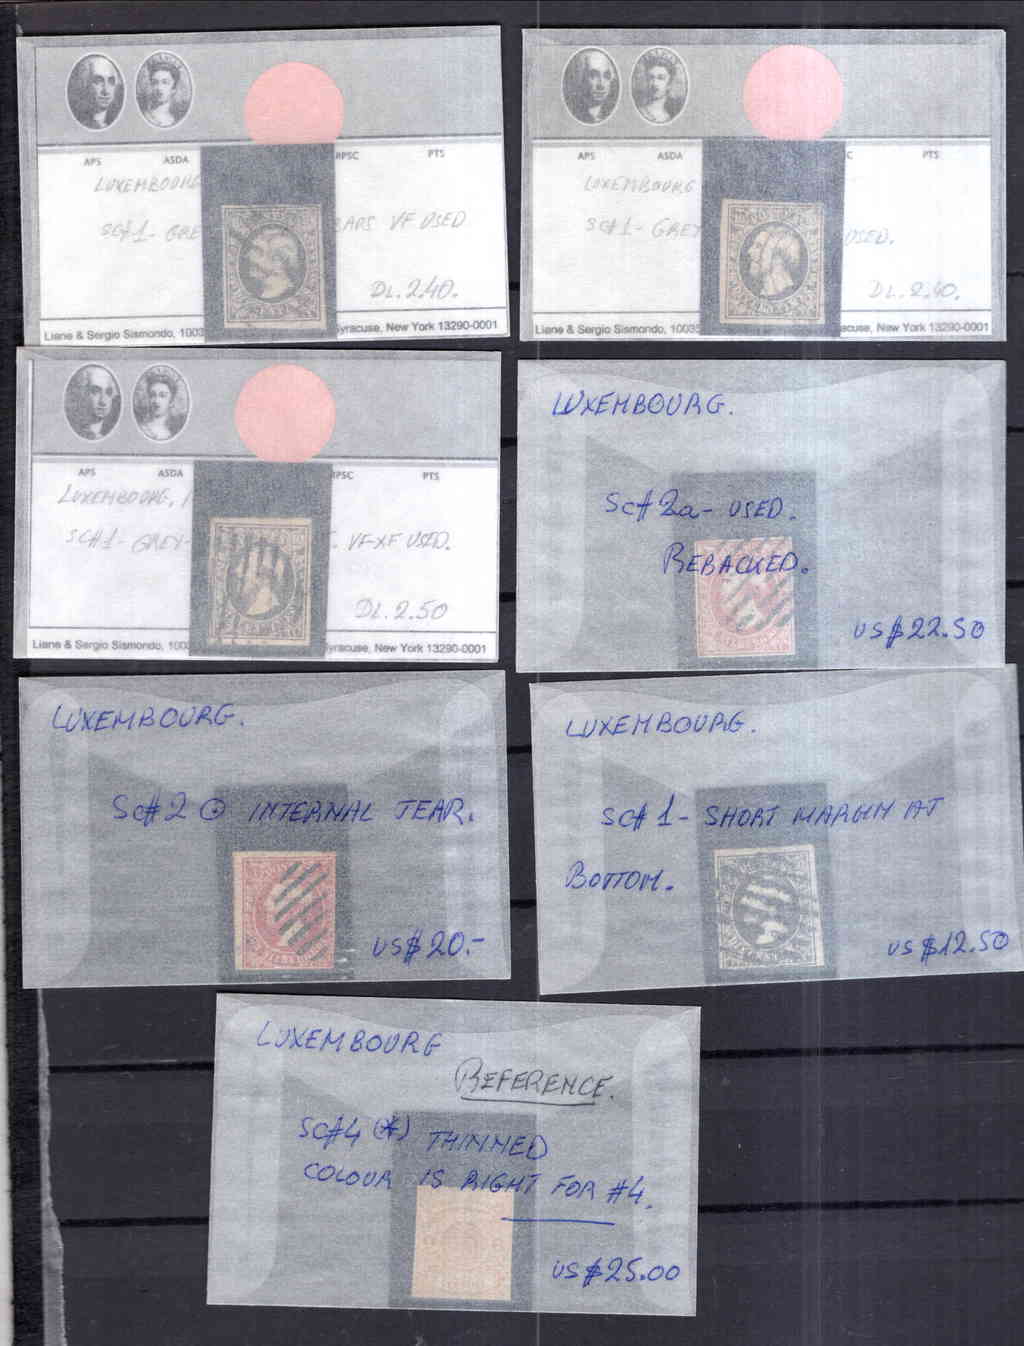 APS ASDA RPSC PTS
LUXEMBOURG
SC#1- GRE BARS VF USED
DL.2.40.
Liane & Sergio Sismondo, 1003 Syracuse, New York 13290-0001
APS ASDA C PTS
LUXEMBOURG
SC#1- GREY USED.
DL.2.40.
Liane & Sergio Sismondo, 10035 acuse, New York 13290-0001
APS ASDA RPSC PTS
LUXEMBOURG,
SC#1- GREY- VF-XF USED.
DL.2.50
Liane & Sergio Sismondo, 100 yracuse, New York 13290-0001
LUXEMBOURG.
SC# 2a- USED.
REBACKED.
US$22.50
LUXEMBOURG.
SC# 2 ⊙ INTERNAL TEAR.
US$20.-
LUXEMBOURG.
SC# 1- SHORT MARGIN AT
BOTTOM.
US$12.50
LUXEMBOURG
REFERENCE.
SC#4 (*) THINNED
COLOUR IS RIGHT FOR #4.
US$25.00